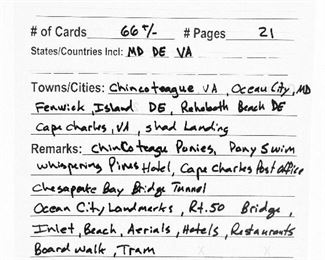 # of Cards 66 +/- # Pages 21
States/Countries Incl: MD DE VA
Towns/Cities: Chincoteague VA, Ocean City, MD
Fenwick, Island DE, Rehoboth Beach DE
Cape Charles, VA, Shad Landing
Remarks: Chincoteague Ponies, Pony Swim
Whispering Pines Hotel, Cape Charles Post Office
Chesapeake Bay Bridge Tunnel
Ocean City Landmarks, Rt. 50 Bridge,
Inlet, Beach, Aerials, Hotels, Restaurants
Board walk, Tram